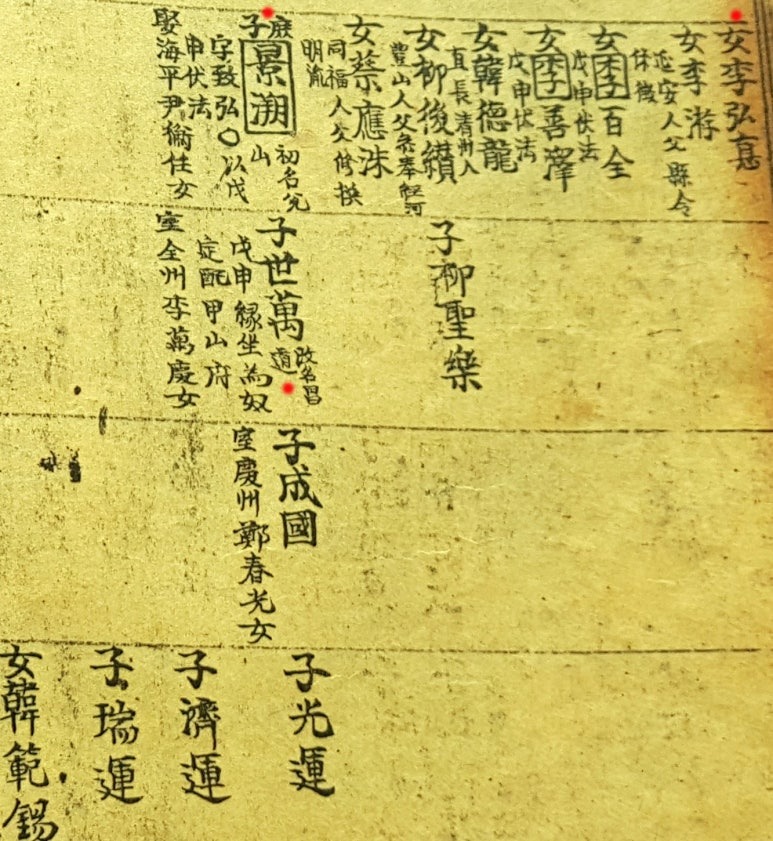 女李弘悳
女李游
延安人父縣令
休徵
女李百全
戊申伏法
女李善澤
戊申伏法
女韓德龍
直長清州人
女柳後纘
豊山人父參奉經河
女蔡應洙
同福人父修撰
明胤
庶子景溯
初名允
山
字致弘〇以戊
申伏法
娶海平尹衡任女
子柳聖樂
子世萬
改名昌
道
戊申緣坐為奴
定配甲山府
室全州李萬慶女
子成國
室慶州鄭春光女
子光運
子濟運
子瑞運
女韓範錫